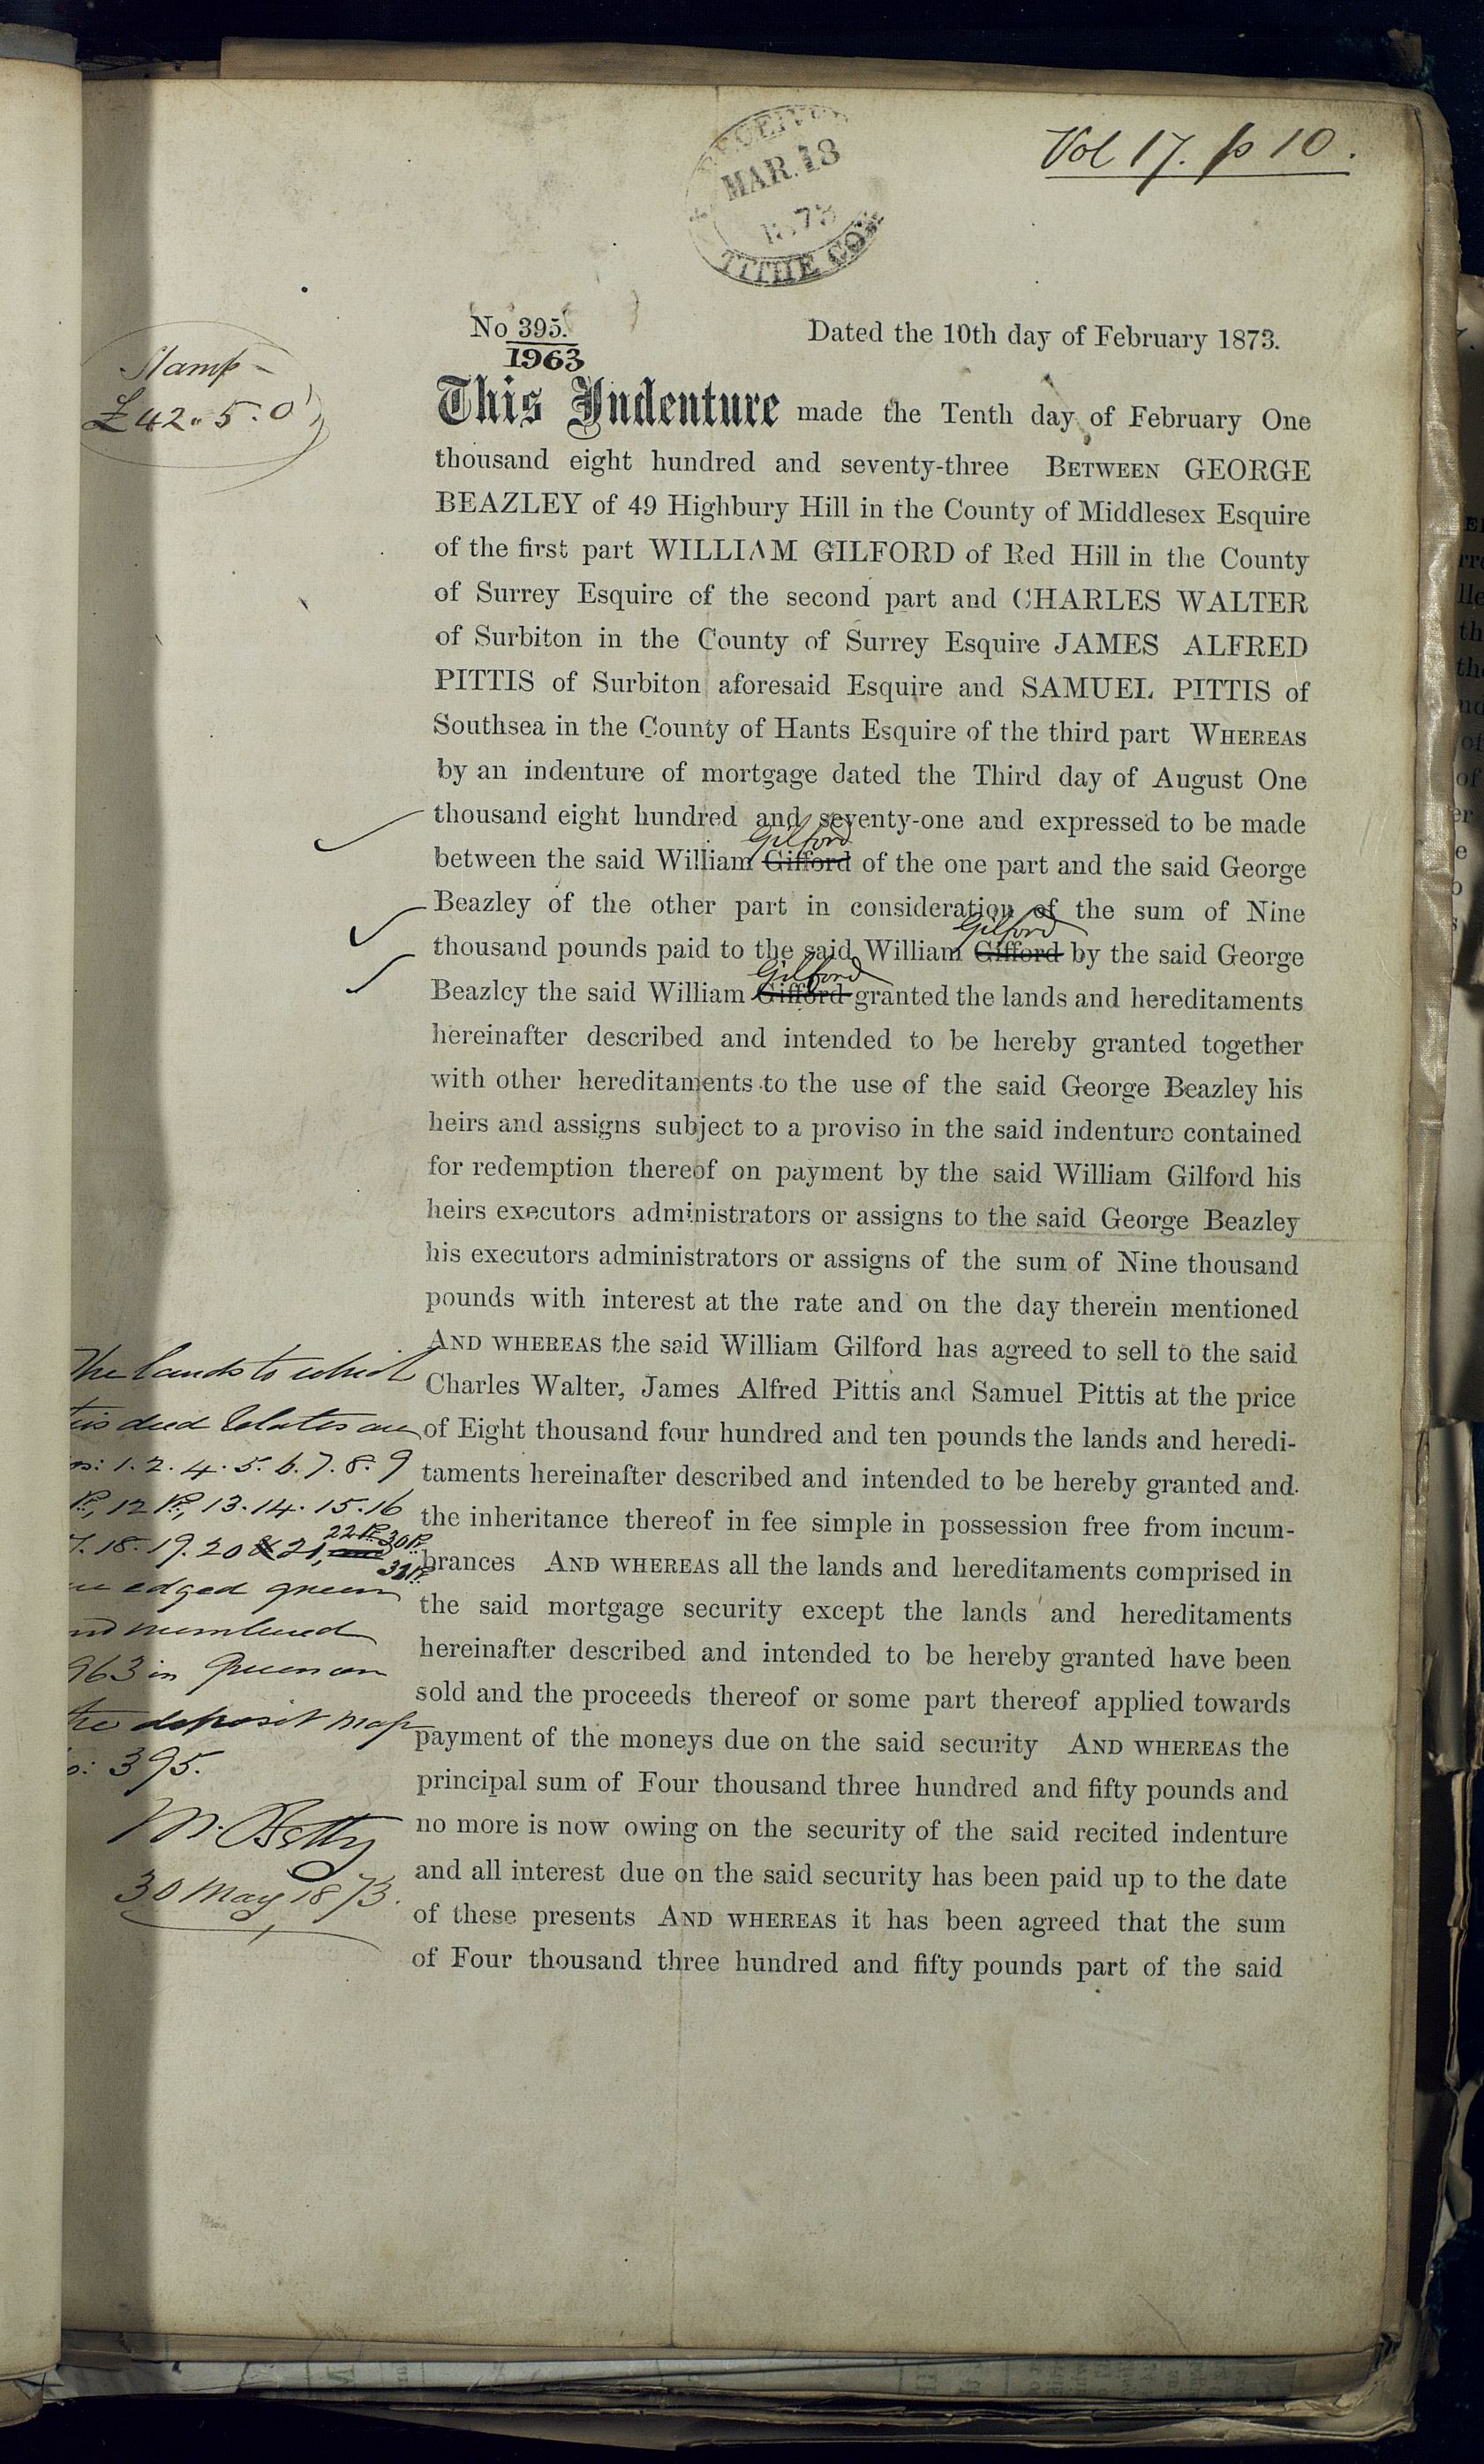 Vol 17. p 10.
RECEIVED
MAR. 18
1873
TITHE COM
No 395.
1963
Dated the 10th day of February 1873.
Stamp -
£42.. 5. 0
This Indenture made the Tenth day of February One
thousand eight hundred and seventy-three BETWEEN GEORGE
BEAZLEY of 49 Highbury Hill in the County of Middlesex Esquire
of the first part WILLIAM GILFORD of Red Hill in the County
of Surrey Esquire of the second part and CHARLES WALTER
of Surbiton in the County of Surrey Esquire JAMES ALFRED
PITTIS of Surbiton aforesaid Esquire and SAMUEL PITTIS of
Southsea in the County of Hants Esquire of the third part WHEREAS
by an indenture of mortgage dated the Third day of August One
thousand eight hundred and seventy-one and expressed to be made
Gilford
between the said William Gifford of the one part and the said George
Beazley of the other part in consideration of the sum of Nine
Gilford
thousand pounds paid to the said William Gifford by the said George
Gilford
Beazley the said William Gifford granted the lands and hereditaments
hereinafter described and intended to be hereby granted together
with other hereditaments to the use of the said George Beazley his
heirs and assigns subject to a proviso in the said indenture contained
for redemption thereof on payment by the said William Gilford his
heirs executors administrators or assigns to the said George Beazley
his executors administrators or assigns of the sum of Nine thousand
pounds with interest at the rate and on the day therein mentioned
AND WHEREAS the said William Gilford has agreed to sell to the said
Charles Walter, James Alfred Pittis and Samuel Pittis at the price
of Eight thousand four hundred and ten pounds the lands and heredi-
taments hereinafter described and intended to be hereby granted and
the inheritance thereof in fee simple in possession free from incum-
brances AND WHEREAS all the lands and hereditaments comprised in
the said mortgage security except the lands and hereditaments
hereinafter described and intended to be hereby granted have been
sold and the proceeds thereof or some part thereof applied towards
payment of the moneys due on the said security AND WHEREAS the
principal sum of Four thousand three hundred and fifty pounds and
no more is now owing on the security of the said recited indenture
and all interest due on the said security has been paid up to the date
of these presents AND WHEREAS it has been agreed that the sum
of Four thousand three hundred and fifty pounds part of the said
The lands to which
this deed relates are
os: 1. 2. 4. 5. 6. 7. 8. 9
Pt, 12 Pt, 13. 14. 15. 16
7. 18. 19. 20 & 21, 22 Pt 30 Pt
edged green
nd numbered
963 in Green on
the deposit map
o: 395.
30 May 1873.